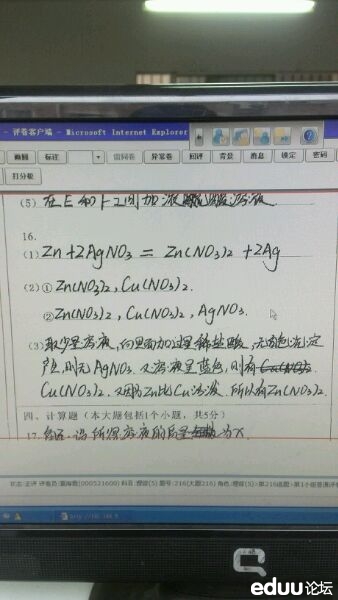 - 评卷客户端 - Microsoft Internet Explorer
画圆 标注 雷同卷 异常卷 回评 背景 消息 锁定 密码
打分板
(5) 在E和F之间加浓硫酸溶液
16.
(1) Zn+2AgNO3 = Zn(NO3)2 +2Ag
(2) ① Zn(NO3)2, Cu(NO3)2.
② Zn(NO3)2, Cu(NO3)2, AgNO3.
(3) 取少量溶液,向里面加过量稀盐酸,无白色沉淀
产生,则无AgNO3. 又溶液呈蓝色,则有Cu(NO3)2
Cu(NO3)2. 又因为Zn比Cu活泼, 所以有Zn(NO3)2.
四、计算题(本大题包括1个小题,共5分)
17. 解:设所得溶液的质量为X
eduu论坛